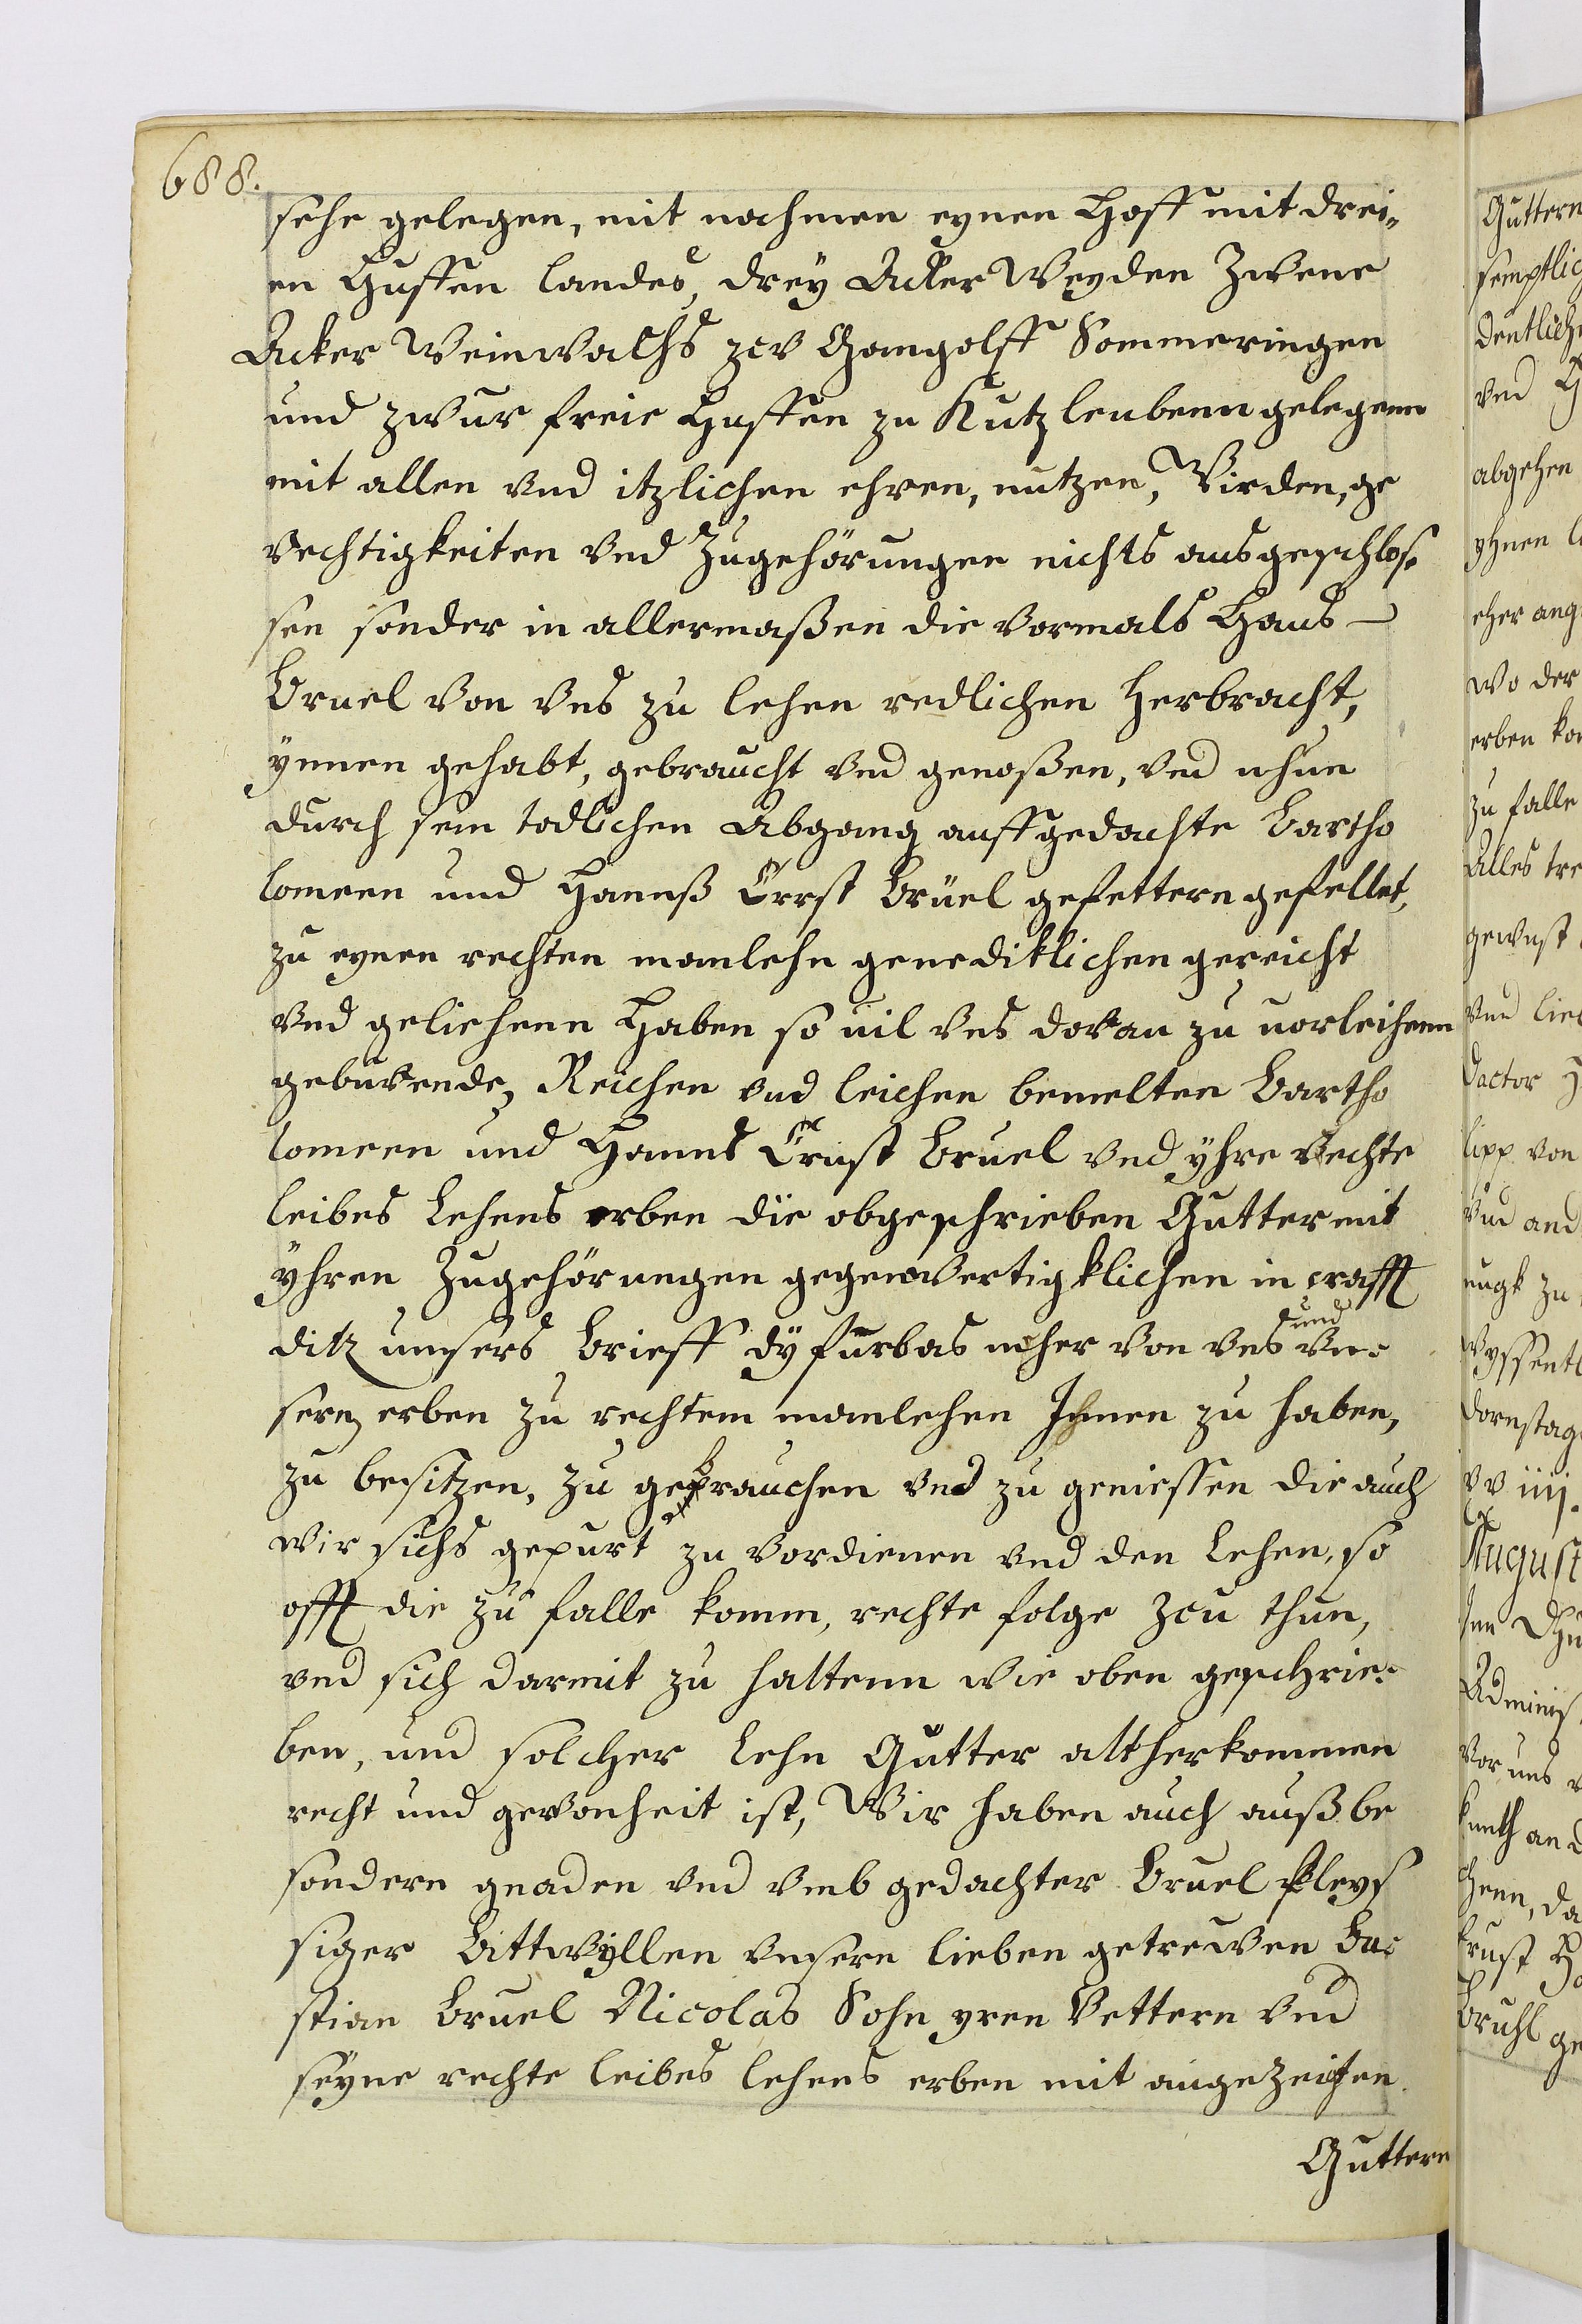 688.
sehe gelegen, mit nochmen eynen Hoff mit drei„
en Huffen landes, drey Acker Weyden Zwene
Acker Weinwachs zcv Gangolff Sommeringen
und zwur freie Huffen zu Kutzleubenn gelegenn
mit allen vnd itzlichen ehren, nutzen, Wirden, ge
rechtigkeiten vnd Zugehörungen nichts ausgeschlos„
sen sonder in allermaßen die vormals Hans
Bruel von vns zu lehen redlichen herbracht,
ynnen gehabt, gebraucht vnd genoßen, vnd nhun
durch sein todlichen Abgang auffgedachte Bartho
lomeen und Hannß Ernst Brüel gefettern gefellet,
zu eynen rechten manlehn genediklichen gereicht
vnd geliehenn Haben so uil vns doran zu uorleihenn
geburende, Reichen vnd leichen bemelten Bartho
lomeen und Hanns Ernst Bruel vnd yhre rechte
leibes Lehens erben die obgeschrieben Gutter mit
yhren Zugehörungen gegenwertigklichen in crafft
ditz unsers Brieff dy furbas meher von vns und vn„
sern erben zu rechtem manlehen Ihnnen zu haben,
zu besitzen, zu gebrauchen vnd zu geniessen die auch
wir sichs gepurt zu vordienen vnd den Lehen, so
offt die zu falle komm, rechte folge zcu thun,
vnd sich darmit zu haltenn wie oben geschrie„
ben, und solcher Lehn Gutter altherkommen
recht und gewonheit ist, Wir haben auch auß be
sondern gnaden vnd vmb gedachter Bruel fleys
siger Bittwyllen vnsern lieben getrewen Ba„
stian Bruel Nicolas Sohn yren Vettern vnd
seyne rechte leibes lehens erben mit angezeigten
Guttern
Guttern
semptlic
dentlich
vnd
abgehen
yhnen l
eher ang
wo der
erben ko
zu falle
Alles tre
gewust
vnd lieb
Doctor H
lipp von
vnd and
ungk zu
Wyssentl
Dornstag
xv iiij.
August
Administ
vor uns v
kunth an d
henn, da
Ernst H
Bruhl ge